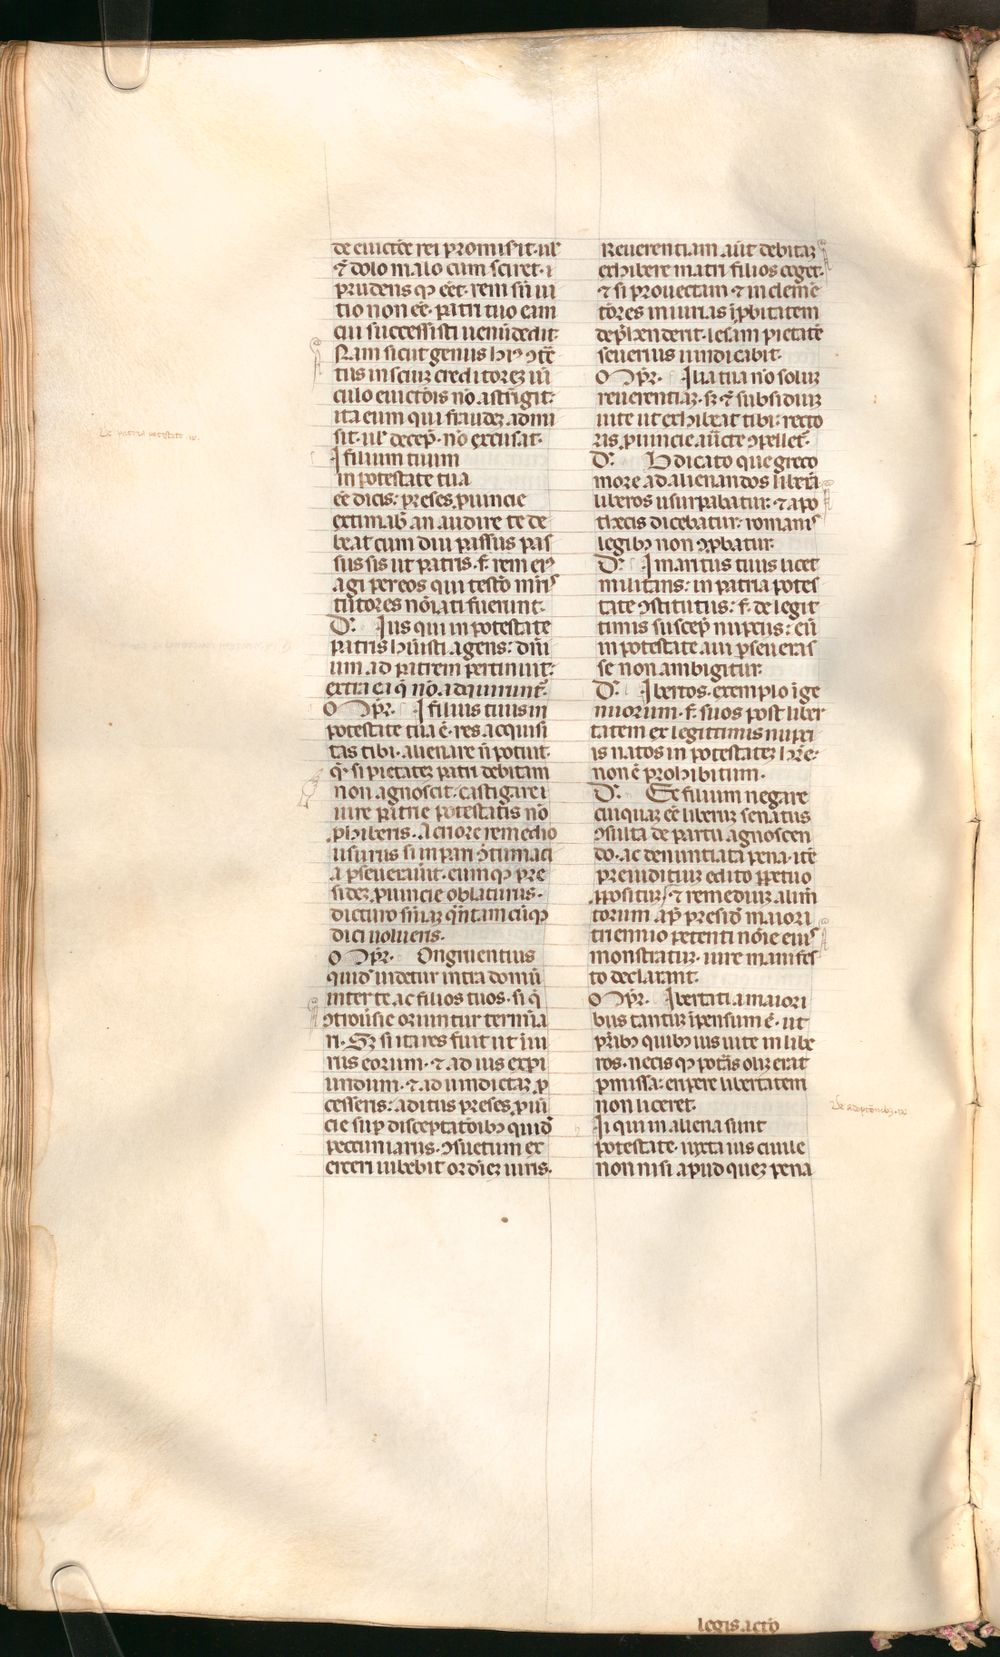 de euictōe rei promisit. uł
⁊ dolo malo cum sciret. i
prudens q̄ eēt. rem sn̄ ui
tio non eē. patri tuo cum
cui successisti uenūdedit.
Nam sicut genus hui9 ꝯtē
tus insciuꝫ creditoreꝫ uī
culo euictōis nō astrigit:
ita eum qui fraudeꝫ admi
sit. uł decep̄. nō excusat.
I filium tuum
in potestate tua
eē dicis: preses ꝓuincie
extimab̄ an audire te de
beat cum diu passus pas
sus sis ut patris. f. rem ei9
agi per eos qui testō mr̄is
tutores nōiati fuerunt.
D. Ius qui in potestate
patris huisti agens: dn̄i
um ad patrem pertinuit:
extra ea q̄ nō adquirunt̄.
O pr̄. I filius tuus in
potestate tua ē. res acquisi
tas tibi. alienare n̄ potuit.
q̄ si pietateꝫ patri debitam
non agnoscit. castigare i
iure patrie potestatis nō
ꝓhiberis. Acriore remedio
usurus si in pari ꝯtumaci
a ꝑseuerauīt. eumqꝫ pre
sideꝫ ꝓuincie oblaturus.
dicturo sn̄iaꝫ qn̄tamcūqꝫ
dici uolueris.
O pr̄. Ongruentius
quid̄ uidetur intra domū
inter te ac filios tuos. si q̄
ꝯtrouſie oriuntur termīa
ri. Sꝫ si ita res fuit ut īiu
rius eorum. ⁊ ad ius expi
undum. ⁊ ad uindictaꝫ ꝓ
cesseris: aditus preses ꝓuī
cie sup̄ disceptatōibꝫ quid̄
pecuniariis. ꝯsuetum ex
erceri iubebit ordīeꝫ iuris.
Reuerentiam aūt debitaꝫ
exhibere matri filios coget.
⁊ si prouectam ⁊ inclemē
tōres iniurias īprobitatem
dep̄hendent. lesam pietatē
seuerius uindicabit.
O pr̄. Ilia tua nō soluꝫ
reuerentiaꝫ. sꝫ ⁊ subsidiuꝫ
uite ut exhibeat tibi: recto
ris ꝓuincie aūcte ꝯpellet̄.
D. Bdicato que greco
more ad alienandos liberi
liberos usurpabatur: ⁊ apo
thecis dicebatur: romanis
legibꝫ non ꝯprobatur.
D. I maritus tuus licet
militans: in patria potes
tate ꝯstitutus: f. de legit
timis suscep̄ nuptiis: eū
in potestate aui ꝑseueras
se non ambigitur.
D. Ibertos. exemplo īge
nuorum. f. suos post liber
tatem ex legittimis nupti
is natos in potestateꝫ hr̄e.
non ē prohibitum.
D. Ee filium negare
cuiquaꝫ eē liberuꝫ senatus
ꝯsulta de partu agnoscen
do. ac denuntiata pena. itē
preiuditiuꝫ edito ꝑpetuo
ꝓpositūꝫ ⁊ remediuꝫ alim̄
torum. ap̄ presid̄ maiori
triennio petenti nōie eius
monstratur. iure manifes
to declarant.
O pr̄. Ibertati a maiori
bus tantuꝫ īpensum ē. ut
pr̄ibꝫ quibꝫ ius uite in libe
ros. necis qꝫ potās olīꝫ erat
ꝑmissa: eripere libertatem
non liceret.
Ii qui in aliena sunt
potestate. iuxta ius ciuile
non nisi apud queꝫ pena
De patria potestate .ꝶ.
De adoptōnibꝫ. ꝶ
legis actō